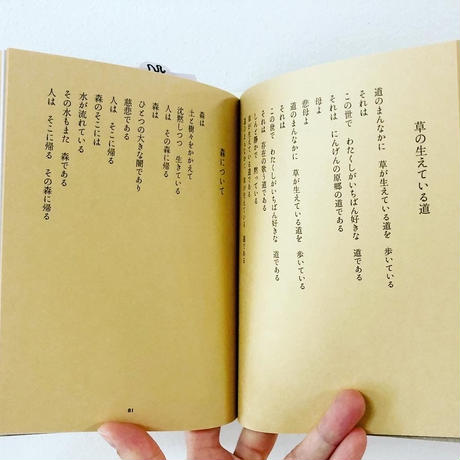 草の生えている道
道のまんなかに 草が生えている道を 歩いている
それは
この世で わたくしがいちばん好きな 道である
それは にんげんの原郷の道である
母よ
悲母よ
道のまんなかに 草が生えている道を 歩いている
それは
この世で わたくしがいちばん好きな 道である
それは 存在の歌う道である
しんと静かで 黙っている
草が生えている道である
森について
森は
土と樹々をかかえて
沈黙しつつ 生きている
人は その森に帰る
森は
ひとつの大きな闇であり
慈悲である
人は そこに帰る
森のそこには
水が流れている
その水もまた 森である
人は そこに帰る その森に帰る
81